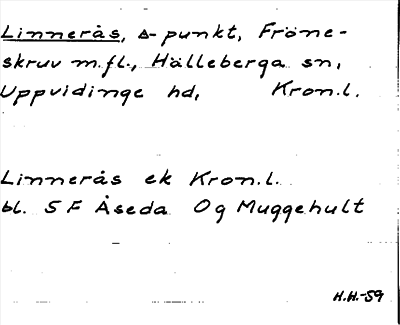 Linnerås, △-punkt, Fröne-
skruv m.fl., Hälleberga sn,
Uppvidinge hd, Kron.l.
Linnerås ek Kron.l.
bl. 5F Åseda Og Muggehult
H.H.-59